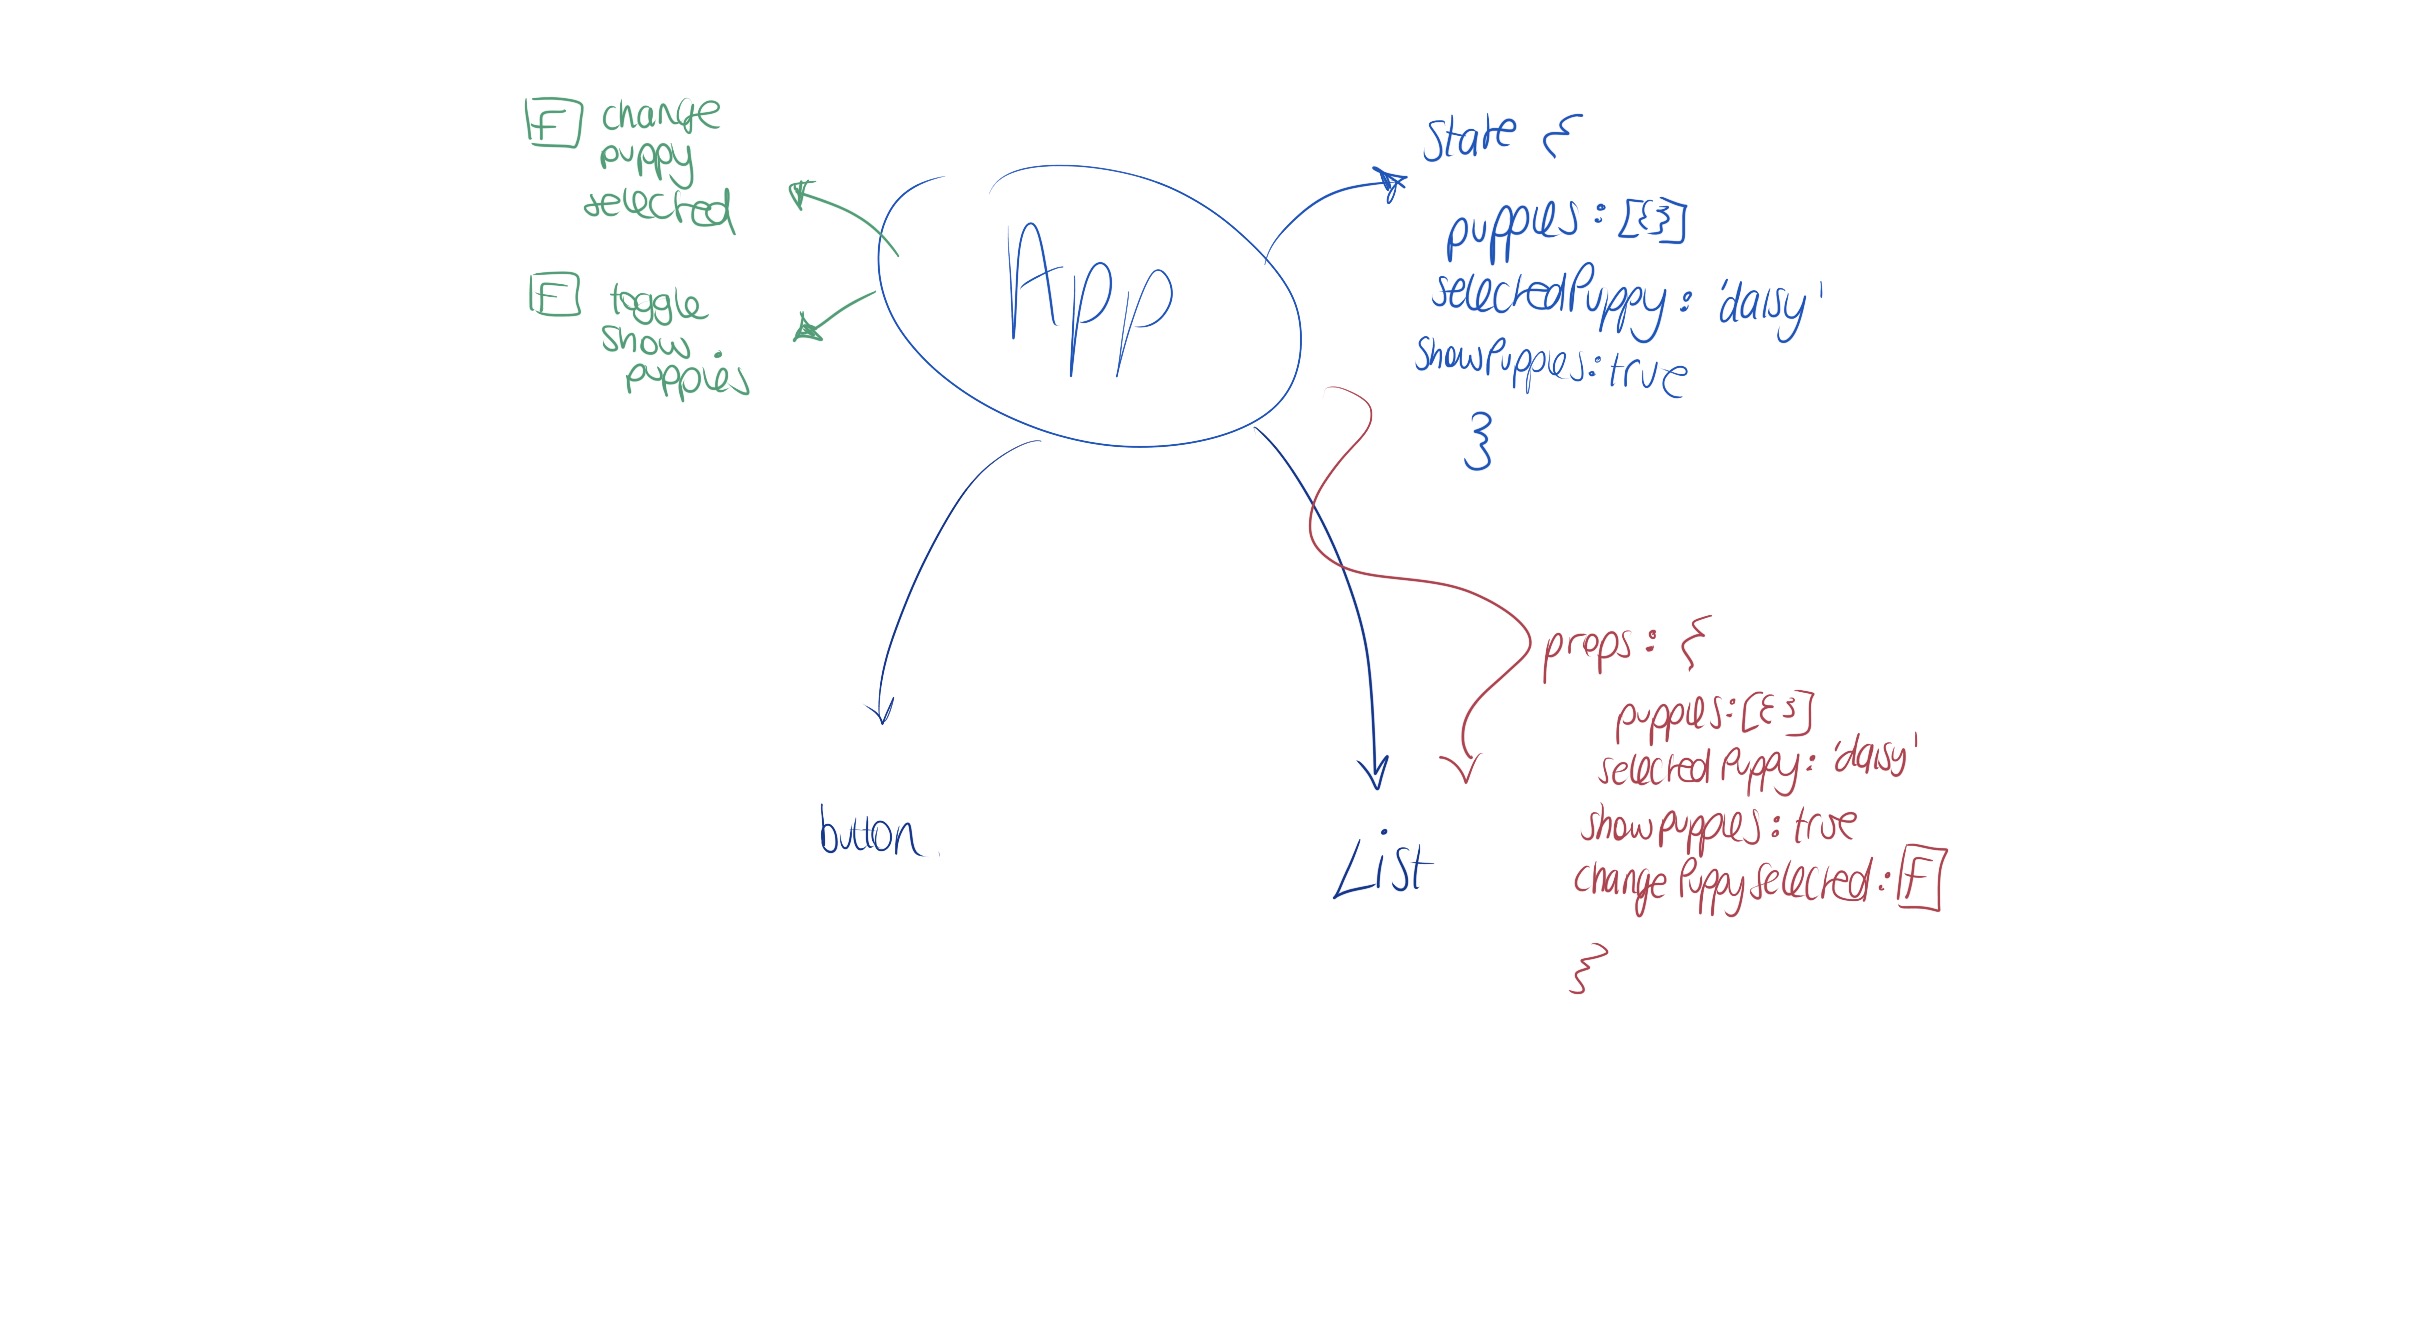 F change
puppy
selected
F toggle
show
puppies
App
State {
puppies: [{}]
selectedPuppy: 'daisy'
showPuppies: true
}
button
List
props: {
puppies: [{}]
selectedPuppy: 'daisy'
showpuppies: true
changePuppySelected: F
}